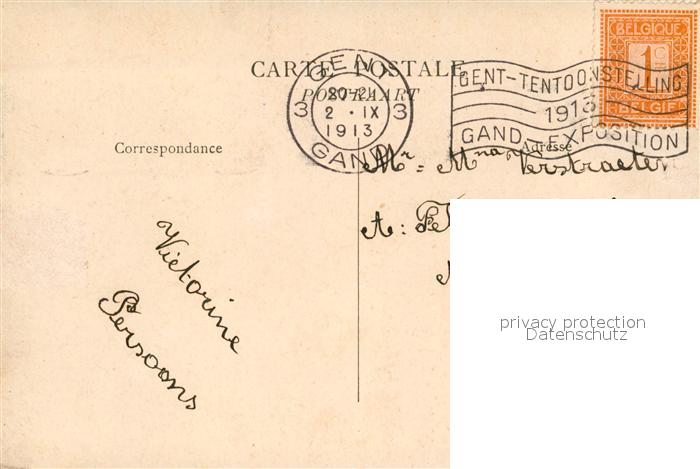 CARTE POSTALE
POSTKAART
GENT
3 20-24 3
2 · IX
1913
GAND
GENT-TENTOONSTELLING
1913
GAND-EXPOSITION
BELGIQUE
1
BELGIË
Correspondance
Adresse
Mr = Verstraeten
A:
Victorine
Persoons
privacy protection
Datenschutz